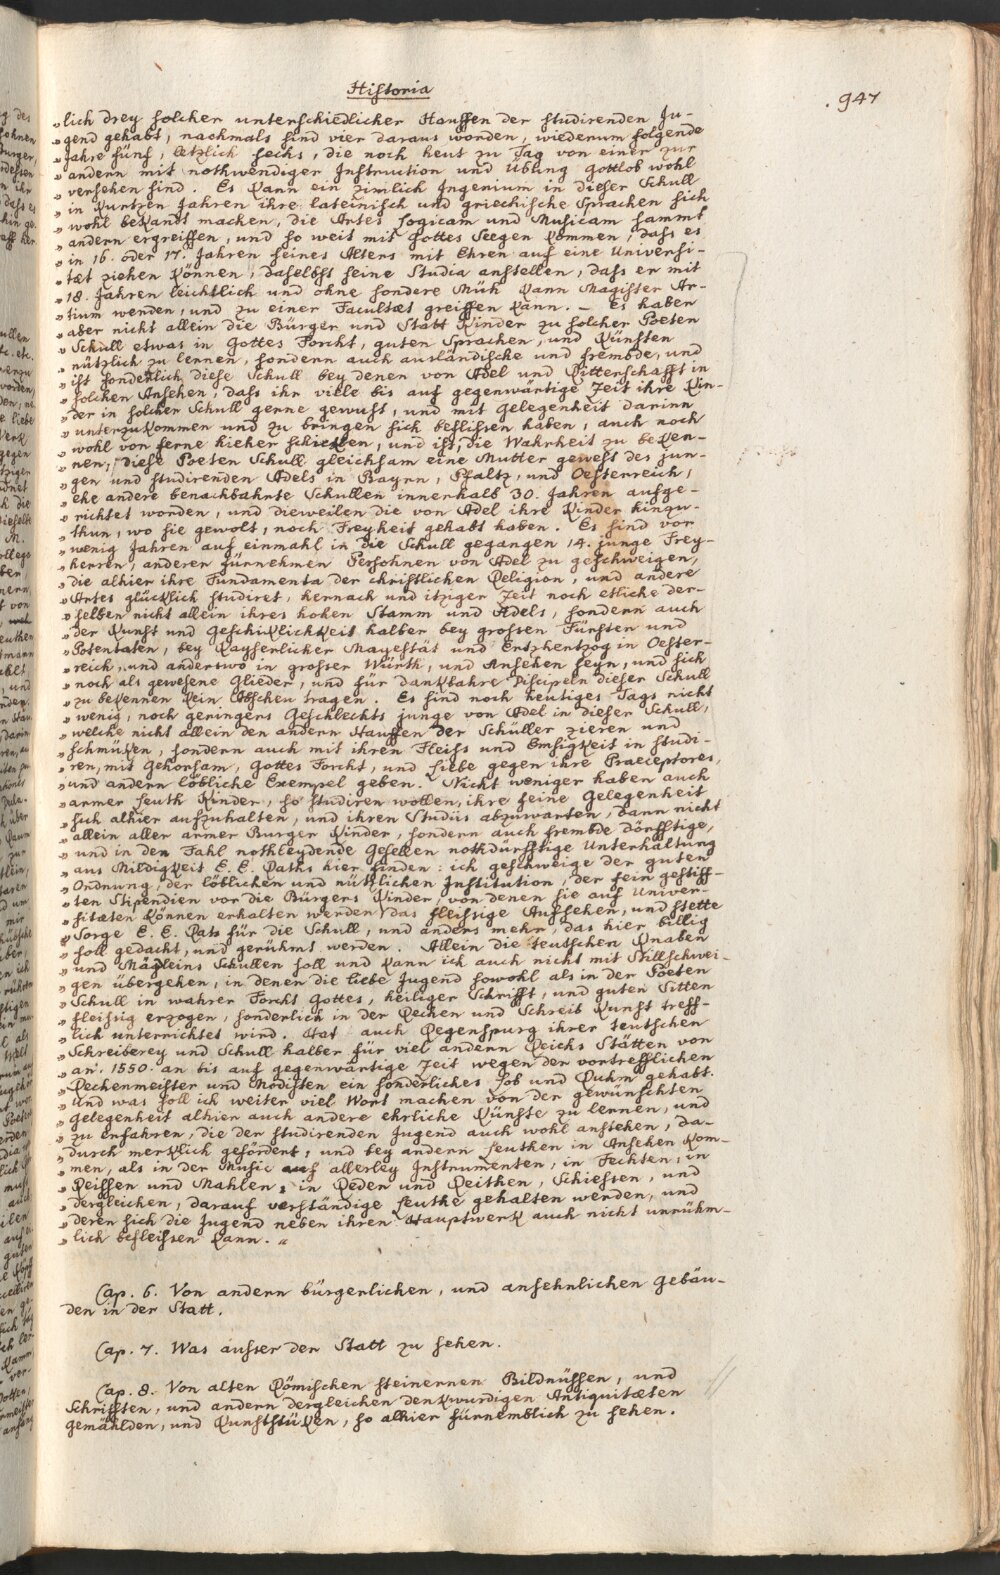 Historia
947
„ lich drey solcher unterschiedlicher Hauffen der studirenden Ju-
„ gend gehabt, nachmals sind vier daraus worden, wiederum folgende
„ Jahre fünf, letzlich sechs, die noch heut zu Tag von einer zur
„ andern mit nothwendiger Instruction und Übung gottlob wohl
„ versehen sind. Es kann ein zimlich Ingenium in dieser Schull
„ in kurtzen Jahren ihre lateinisch und griechische Sprachen sich
„ wohl bekandt machen, die Artes Logicam und Musicam sammt
„ andern ergreiffen, und so weit mit Gottes Seegen kommen, dass es
„ in 16. oder 17. Jahren seines Alters mit Ehren auf eine Universi-
„ tæt ziehen können, daselbst seine Studia anstellen, dass er mit
„ 18. Jahren leichtlich und ohne sondere Müh kann Magister Ar-
„ tium werden, und zu einer Facultæt greiffen kann. – Es haben
„ aber nicht allein die Bürger und Statt Kinder zu solcher Poeten
„ Schull etwas in Gottes Forcht, guten Sprachen, und Künsten
„ nützlich zu lernen, sondern auch ausländische und frembde, und
„ ist sonderlich diese Schull bey denen von Adel und Ritterschafft in
„ solchen Ansehen, dass ihr viele bis auf gegenwärtige Zeit ihre Kin-
„ der in solcher Schull gerne gewust, und mit Gelegenheit darinn
„ unterzukommen und zu bringen sich beflissen haben, auch noch
„ wohl von ferne hieher schicken, und ist, die Wahrheit zu beken-
„ nen, diese Poeten Schull gleichsam eine Mutter gewest des jun-
„ gen und studirenden Adels in Bayrn, Pfaltz, und Oesterreich,
„ ehe andere benachbahrte Schullen innerhalb 30. Jahren aufge-
„ richtet worden, und dieweilen die von Adel ihre Kinder hinzu-
„ thun, wo sie gewolt, noch Freyheit gehabt haben. Es sind vor
„ wenig Jahren auf einmahl in die Schull gegangen 14. junge Frey-
„ herren, anderer fürnehmen Persohnen von Adel zu geschweigen,
„ die alhier ihre Fundamenta der christlichen Religion, und andere
„ Artes glücklich studiret, hernach und itziger Zeit noch etliche der-
„ selben nicht allein ihres hohen Stamm und Adels, sondern auch
„ der Kunst und Geschiklichkeit halber bey grossen Fürsten und
„ Potentaten, bey Kayserlicher Mayestät und Ertzhertzog in Oester-
„ reich, und anderswo in grosser Würth, und Ansehen seyn, und sich
„ noch als gewesene Glieder, und für dankbahre Discipeln dieser Schull
„ zu bekennen kein Abscheu tragen. Es sind noch heutiges Tags nicht
„ wenig, noch geringers Geschlechts junge von Adel in dieser Schull,
„ welche nicht allein den andern Hauffen der Schüller zieren und
„ schmüken, sondern auch mit ihren Fleiss und Emsigkeit in studi-
„ ren, mit Gehorsam, Gottes Forcht, und Liebe gegen ihre Praeceptores,
„ und andern löbliche Exempel geben. Nicht weniger haben auch
„ armer Leuth Kinder, so studiren wollen, ihre feine Gelegenheit
„ sich alhier aufzuhalten, und ihren Studiis abzuwarten, dann nicht
„ allein aller armer Burger Kinder, sondern auch frembde Dörfftige,
„ und in den Fahl nothleydende Gesellen nothdürfftige Unterhaltung
„ aus Mildigkeit E. E. Raths hier finden: ich geschweige der guten
„ Ordnung, der löblichen und nützlichen Institution, der fein gestiff-
„ ten Stipendien vor die Bürgers Kinder, von denen sie auf Univer-
„ sitæten können erhalten werden, das fleissige Aufsehen, und stette
„ Sorge E. E. Rats für die Schull, und anders mehr, das hier billig
„ soll gedacht, und gerühmt werden. Allein die teutschen Knaben
„ und Mägleins Schullen soll und kann ich auch nicht mit Stillschwei-
„ gen übergehen, in denen die liebe Jugend sowohl als in der Poeten
„ Schull in wahrer Forcht Gottes, heiliger Schrifft, und guten Sitten
„ fleissig erzogen, sonderlich in der Rechen und Schreib Kunst treff-
„ lich unterrichtet wird. Hat auch Regenspurg ihrer teutschen
„ Schreiberey und Schull halber für viel andern Reichs Stätten von
„ an. 1550. an bis auf gegenwärtige Zeit wegen der vortrefflichen
„ Rechenmeister und Modisten ein sonderliches Lob und Ruhm gehabt.
„ Und was soll ich weiter viel Wort machen von der gewunschten
„ Gelegenheit alhier auch andere ehrliche Künste zu lernen, und
„ zu erfahren, die der studirenden Jugend auch wohl anstehen, da-
„ durch merklich gefördert, und bey andern Leuthen in Ansehen kom-
„ men, als in der Music auf allerley Instrumenten, in Fechten, in
„ Reissen und Mahlen, in Reden und Reithen, Schiessen, und
„ dergleichen, darauf verständige Leuthe gehalten werden, und
„ deren sich die Jugend neben ihren Hauptwerk auch nicht unrühm-
„ lich befleissen kann. „
Cap. 6. Von andern bürgerlichen, und ansehnlichen Gebäu-
den in der Statt.
Cap. 7. Was ausser der Statt zu sehen.
Cap. 8. Von alten Römischen steinernen Bildnüssen, und
Schrifften, und andern dergleichen denkwurdigen Antiquitæten
Gemählden, und Kunststüken, so alhier fürnemblich zu sehen.